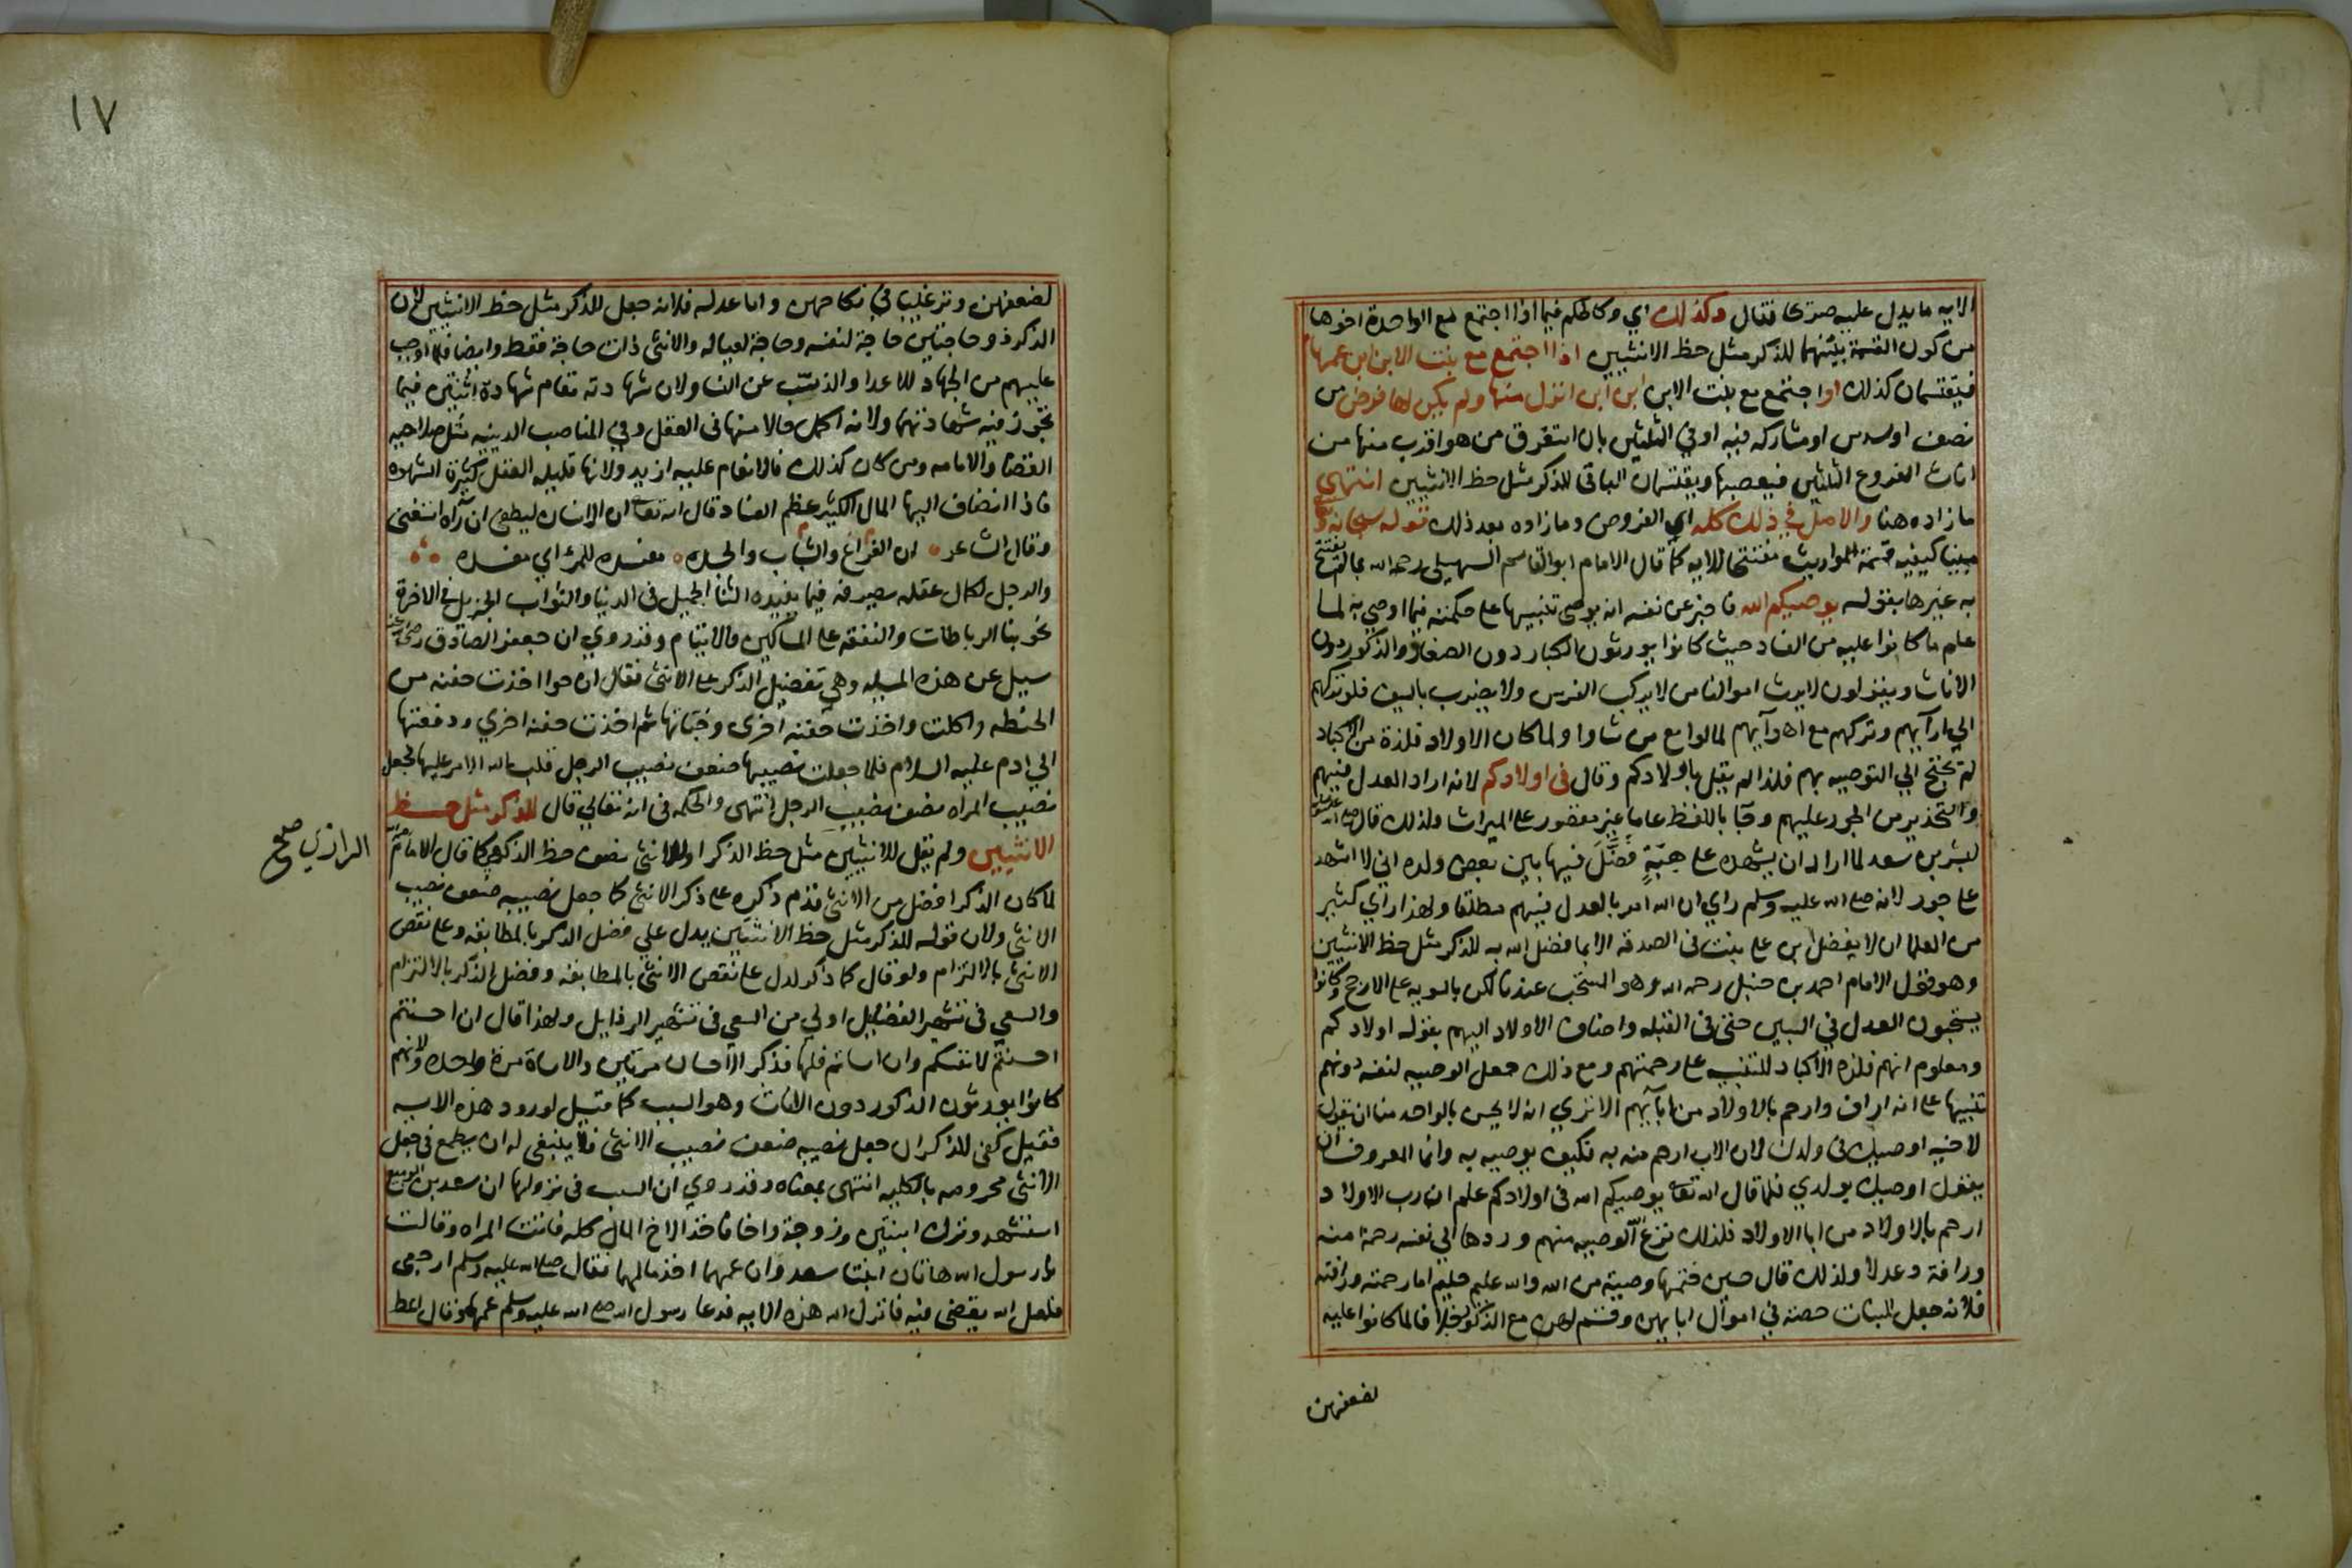 الايه ما يدل عليه صريحا فقال وكذلك اي وكالحكم فيما اذا اجتمع مع الواحدة اخوها
من كون القسمة بينهما للذكر مثل حظ الانثيين اذا اجتمع مع بنت الابن ابن عمها
فيقتسمان كذلك او اجتمع مع بنت الابن ابن ابن انزل منها ولم يكن لها فرض من
نصف او سدس او مشاركه فيه او في الثلثين بان استغرق من هو اقرب منها من
اناث الفروع الثلثين فيعصبها ويقتسمان الباقي للذكر مثل حظ الانثيين انتهى
ما زاده هنا والاصل في ذلك كله اي الفروض وما زاده بعد ذلك قوله سبحانه
مبينا كيفيه قسمة المواريث مفتتحا للايه كما قال الامام ابو القاسم السهيلي رحمه الله بما لم يفتتح
به غيرها بقوله يوصيكم الله فاخبر عن نفسه انه يوصي تنبيها على حكمته فيما اوصي به لما
علم ما كانوا عليه من الفساد حيث كانوا يورثون الكبار دون الصغار والذكور دون
الاناث ويقولون لا يرث اموالنا من لا يركب الفرس ولا يضرب بالسيف فلو تركهم
الي ارآيهم وتركهم مع اهوآيهم لمالوا مع من شاوا ولما كان الاولاد فلذة من الاكباد
لم يحتج الي التوصيه بهم فلذا لم يقل باولادكم وقال في اولادكم لانه اراد العدل فيهم
والتحذير من الجور عليهم وجآ باللفظ عاما غير مقصور على الميراث ولذلك قال صلى الله عليه وسلم
لبشر بن سعد لما اراد ان يشهده على هبةٍ فَضَّلَ فيها بين بعض ولده اني لا اشهد
على جور لانه صلى الله عليه وسلم راي ان الله امر بالعدل فيهم مطلقا ولهذا راي كثير
من العلما ان لا يفضل ابن على بنت في الصدقه الا بما فضل الله به للذكر مثل حظ الانثيين
وهو قول الامام احمد بن حنبل رحمه الله وهو المستحب عندنا لكن بالسويه على الارجح وكانوا
يستحبون العدل في البنين حتى في القبله واضاف الاولاد اليهم بقوله اولادكم
ومعلوم انهم فلذة الاكباد للتنبيه على رحمتهم ومع ذلك جعل الوصيه لنفسه دونهم
تنبيها على انه اراف وارحم بالاولاد من ابآيهم الا تري انه لا يحسن بالواحد منا ان يقول
لاخيه اوصيك في ولدك لان الاب ارحم منه به فكيف يوصيه به وانما المعروف ان
يقول اوصيك بولدي فلما قال الله تعالى يوصيكم الله في اولادكم علم ان رب الاولاد
ارحم بالاولاد من ابا الاولاد فلذلك نزع الوصيه منهم وردها الي نفسه رحمة منه
ورافة وعدلا ولذلك قال حين ختمها وصية من الله والله عليم حليم اما رحمته ورافته
فلانه جعل للبنات حصة في اموال ابايهن وقسم لهن مع الذكور خلافا لما كانوا عليه
لضعفهن
١٧
لضعفهن وترغيبا في نكاحهن واما عدله فلانه جعل للذكر مثل حظ الانثيين لان
الذكر ذو حاجتين حاجة لنفسه وحاجة لعياله والانثى ذات حاجة فقط وايضا فلما اوجب
عليهم من الجهاد للاعدا والذب عن النسا ولان شهادته تقام شهادة اثنتين فيما
تجوز فيه شهادتهما ولانه اكمل حالا منها في العقل وفي المناصب الدينيه مثل صلاحيه
القضا والامامه ومن كان كذلك فالانعام عليه ازيد ولانها قليله العقل كثيرة الشهوه
فاذا انضاف اليها المال الكثير عظم الفساد قال الله تعالى ان الانسان ليطغى ان رآه استغنى
وقال الشاعر ان الفراغ والشباب والجده مفسده للمرء اي مفسده
والرجل لكمال عقله يصرفه فيما يفيده الثنا الجميل في الدنيا والثواب الجزيل في الاخرة
نحو بنا الرباطات والنفقه على المساكين والايتام وقد روي ان جعفر الصادق رضي الله عنه
سيل عن هذه المسيله وهي تفضيل الذكر على الانثى فقال ان حوا اخذت حفنه من
الحنطه واكلت واخذت حفنه اخرى وخباتها ثم اخذت حفنه اخري ودفعتها
الي ادم عليه السلام فلما جعلت نصيبها ضعف نصيب الرجل قلب الله الامر عليها فجعل
نصيب المراه نصف نصيب الرجل انتهى والحكمه في انه تعالي قال للذكر مثل حظ
الانثيين ولم يقل للانثيين مثل حظ الذكر او للانثى نصف حظ الذكر كما قال الامام
الرازي صح
لما كان الذكر افضل من الانثى قدم ذكره على ذكر الانثى كما جعل نصيبه ضعف نصيب
الانثى ولان قوله للذكر مثل حظ الانثيين يدل علي فضل الذكر بالمطابقه وعلى نقص
الانثى بالالتزام ولو قال كما ذكر لدل على نقص الانثى بالمطابقه وفضل الذكر بالالتزام
والسعي في تشهير الفضايل اولي من السعي في تشهير الرذايل ولهذا قال ان احسنتم
احسنتم لانفسكم وان اساتم فلها فذكر الاحسان مرتين والاساة مرة واحده ولانهم
كانوا يورثون الذكور دون الاناث وهو السبب كما قيل لورود هذه الايه
فقيل كفى للذكر ان جعل نصيبه ضعف نصيب الانثى فلا ينبغي له ان يطمع في جعل
الانثى محرومه بالكليه انتهى بمعناه وقد روي ان السبب في نزولها ان سعد بن الربيع
استشهد وترك ابنتين وزوجة واخا فاخذ الاخ المال كله فاتت المراه وقالت
يا رسول الله هاتان ابنتا سعد وان عمهما اخذ مالهما فقال صلى الله عليه وسلم ارجعي
فلعل الله يقضي فيه فانزل الله هذه الايه فدعا رسول الله صلى الله عليه وسلم عمهما وقال اعط